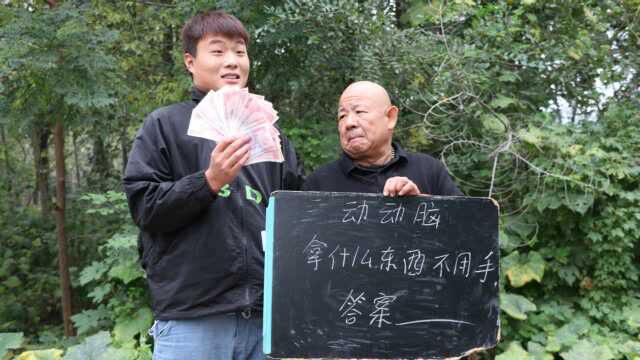 动动脑
拿什么东西不用手,
答案____